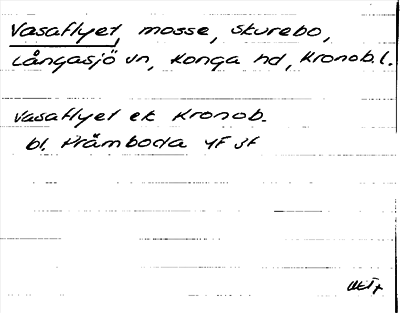 Vasaflyet, mosse, Skurebo,
Långasjö sn, Konga hd, Kronob. l.
Vasaflyet ek Kronob.
bl. Pråmboda 4F JF